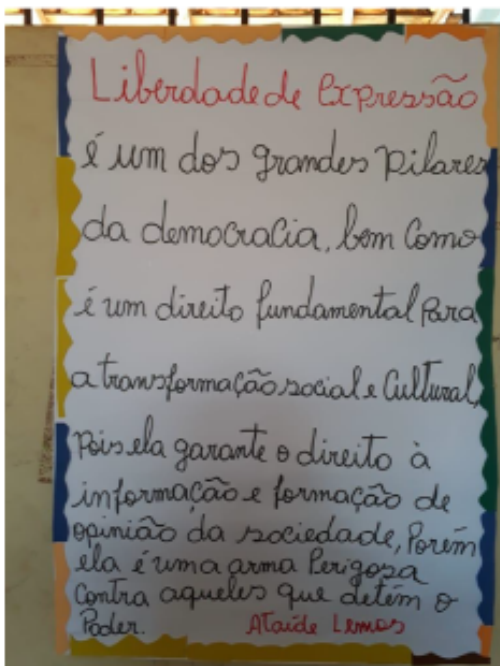 Liberdade de Expressão
é um dos grandes Pilares
da democracia, bem Como
é um direito fundamental Para
a transformação social e Cultural,
Pois ela garante o direito à
informação e formação de
opinião da sociedade, Porém
ela é uma arma Perigosa
Contra aqueles que detém o
Poder. Ataíde Lemos